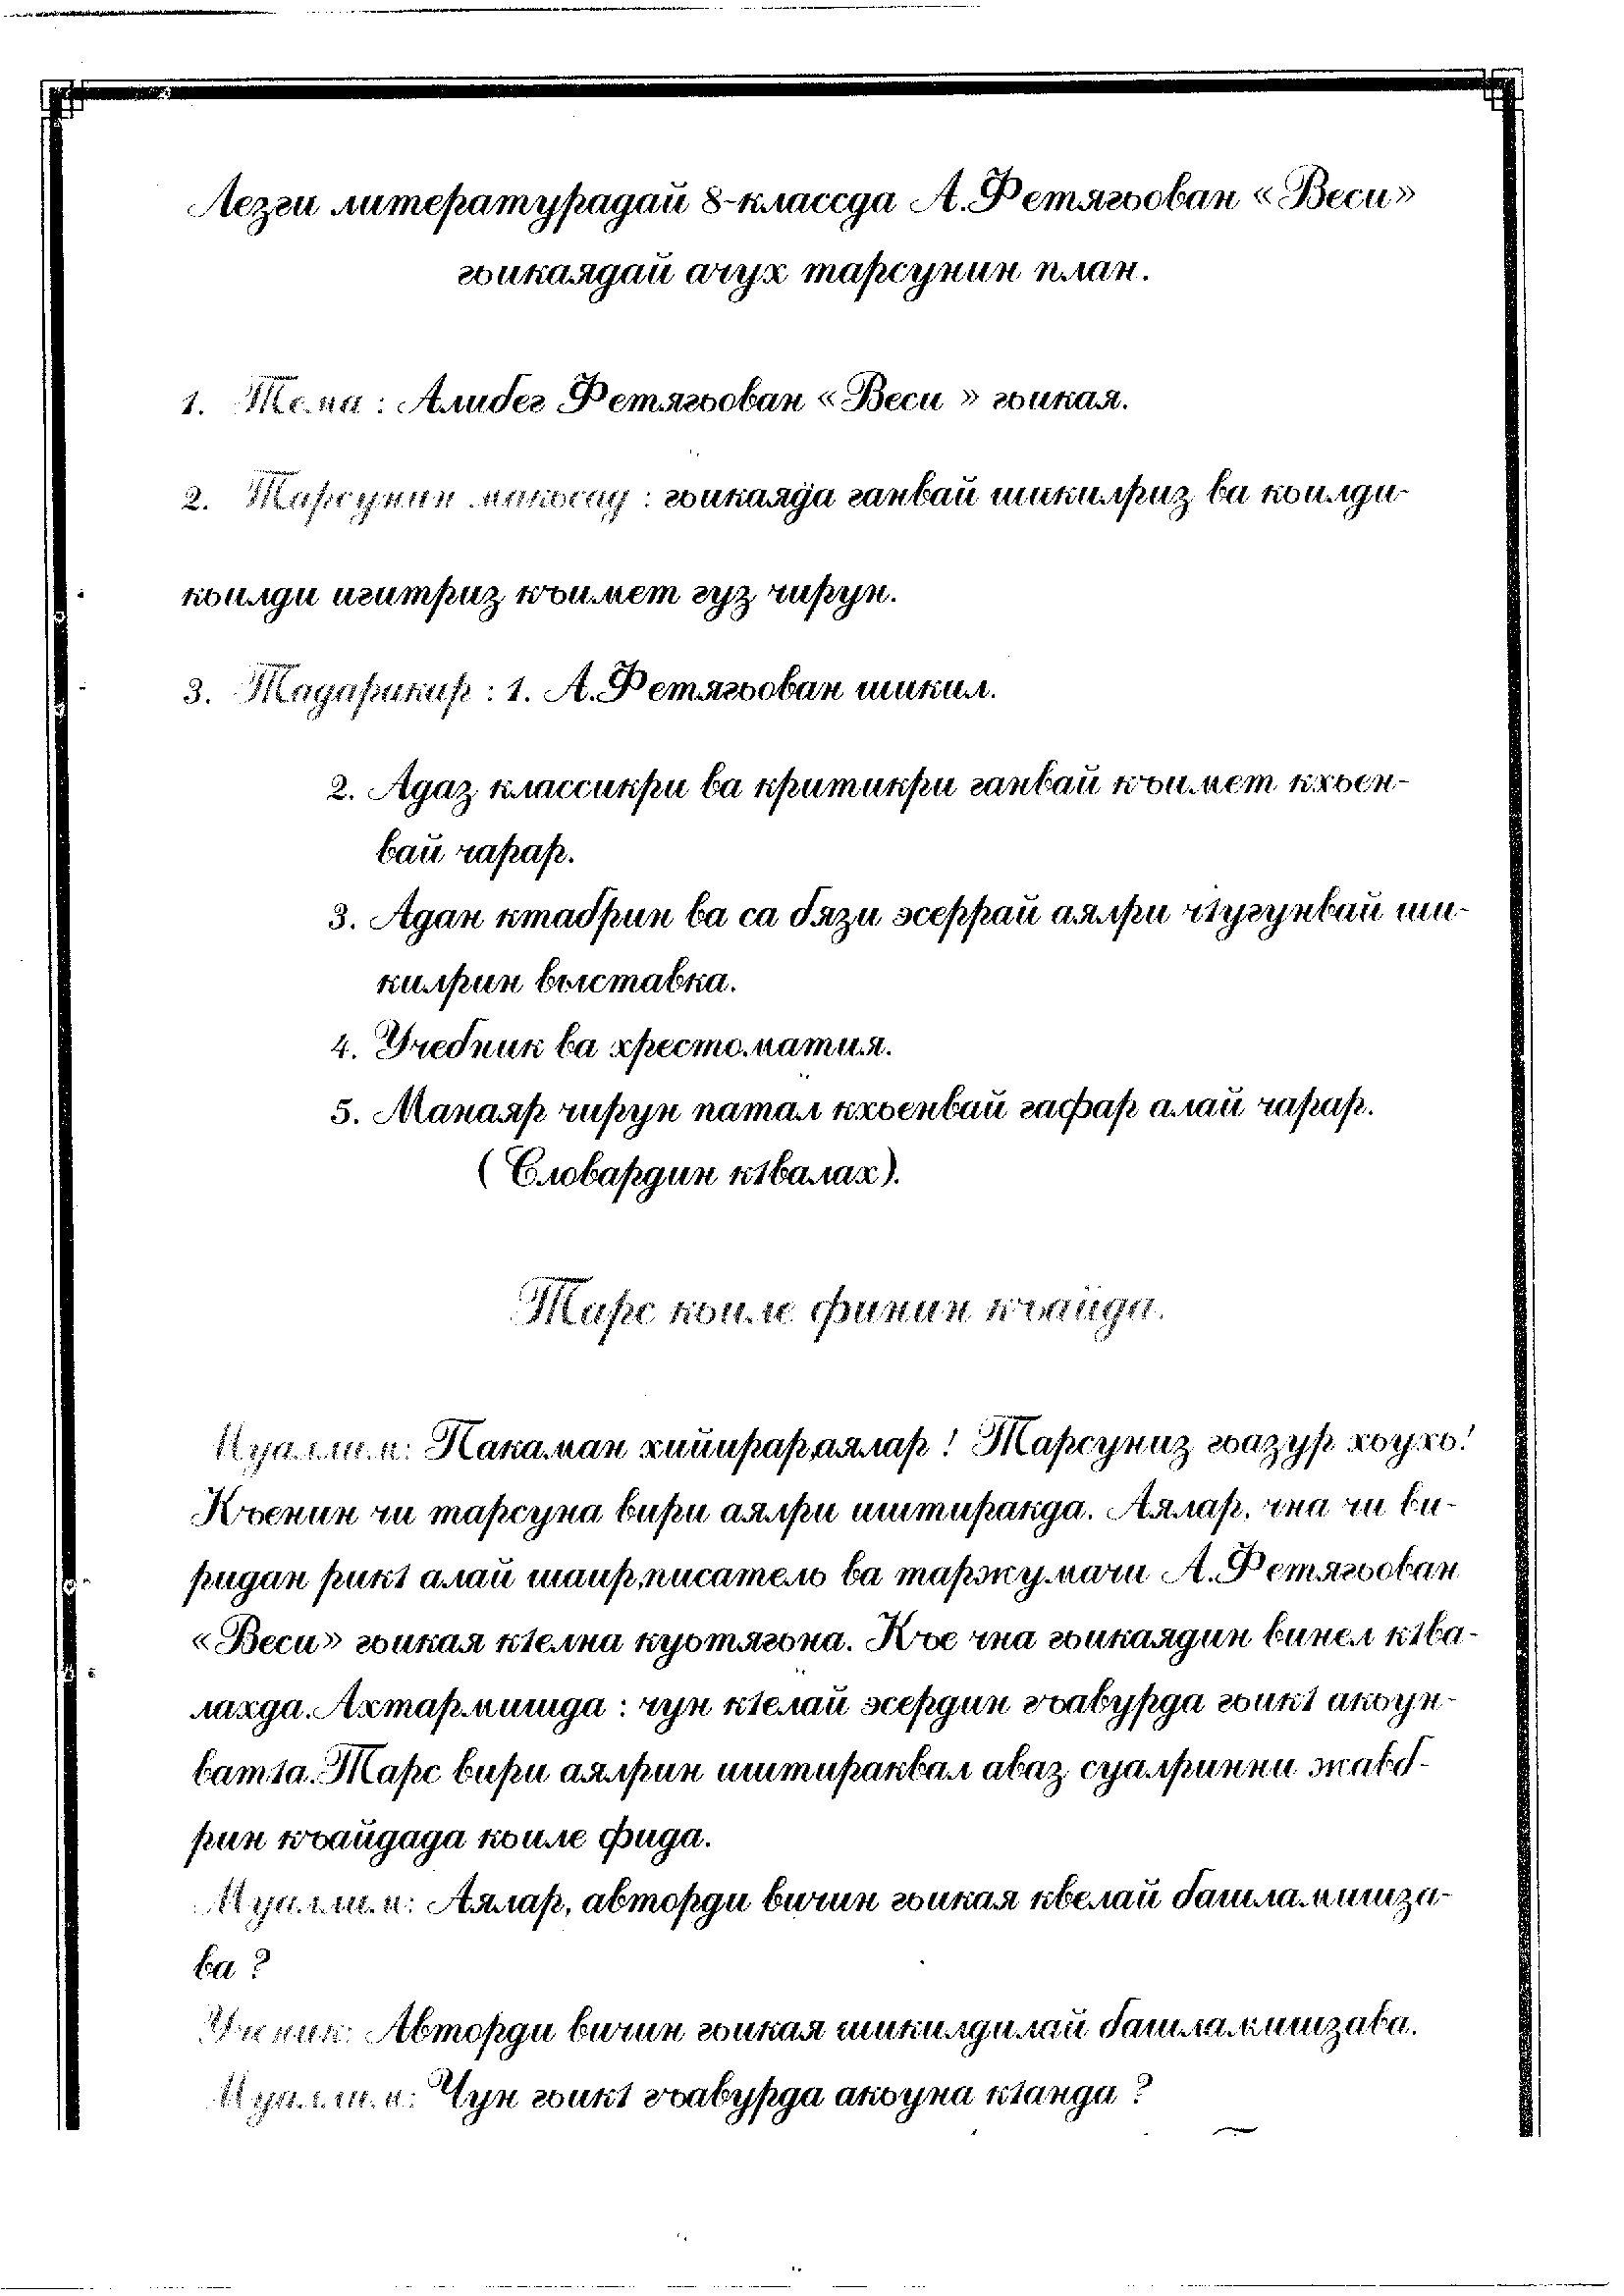 Лезги литературадай 8-классда А.Фетягьован «Веси»
гьикаядай ачух тарсунин план.
1. Тема : Алибег Фетягьован «Веси » гьикая.
2. Тарсунин макьсад : гьикаяда ганвай шикилриз ва кьилди-
кьилди игитриз къимет гуз чирун.
3. Тадарикир : 1. А.Фетягьован шикил.
2. Адаз классикри ва критикри ганвай къимет кхьен-
вай чарар.
3. Адан ктабрин ва са бязи эсеррай аялри ч1угунвай ши-
килрин выставка.
4. Учебник ва хрестоматия.
5. Манаяр чирун патал кхьенвай гафар алай чарар.
( Словардин к1валах).
Тарс кьиле финин къайда.
Муаллим: Пакаман хийирар,аялар ! Тарсуниз гьазур хьухь!
Къенин чи тарсуна вири аялри иштиракда. Аялар, чна чи ви-
ридан рик1 алай шаир,писатель ва таржумачи А.Фетягьован
«Веси» гьикая к1елна куьтягьна. Къе чна гьикаядин винел к1ва-
лахда.Ахтармишда : чун к1елай эсердин гъавурда гьик1 акьун-
ват1а.Тарс вири аялрин иштираквал аваз суалринни жавб-
рин къайдада кьиле фида.
Муаллим: Аялар, авторди вичин гьикая квелай башламишза-
ва ?
Ученик: Авторди вичин гьикая шикилдилай башламишзава.
Муаллим: Чун гьик1 гъавурда акьуна к1анда ?